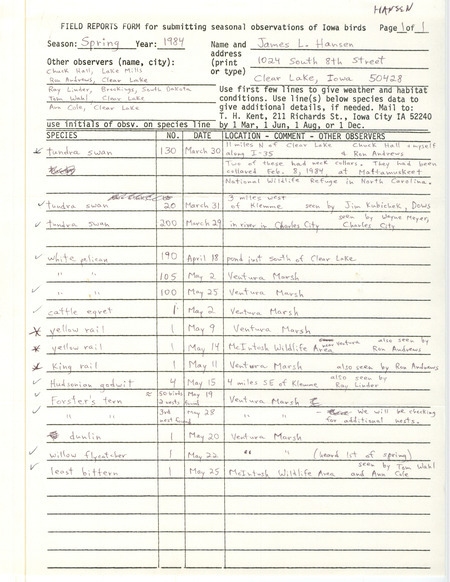 HANSEN
FIELD REPORTS FORM for submitting seasonal observations of Iowa birds Page 1 of 1
Season: Spring Year: 1984 Name and address (print or type) James L. Hansen
1024 South 8th Street
Clear Lake, Iowa 50428
Other observers (name, city):
Chuck Hall, Lake Mills
Ron Andrews, Clear Lake
Ray Linder, Brookings, South Dakota
Tom Wahl Clear Lake
Ann Cole, Clear Lake
use initials of obsv. on species line
Use first few lines to give weather and habitat
conditions. Use line(s) below species data to
give additional details, if needed. Mail to:
T. H. Kent, 211 Richards St., Iowa City IA 52240
by 1 Mar, 1 Jun, 1 Aug, or 1 Dec.
SPECIES NO. DATE LOCATION - COMMENT - OTHER OBSERVERS
tundra swan 130 March 30 11 miles N of Clear Lake Chuck Hall & myself
along I-35 & Ron Andrews
Two of these had neck collars. They had been
collared Feb. 8, 1984, at Mattamuskeet
National Wildlife Refuge in North Carolina.
tundra swan 20 March 31 3 miles west
of Klemme seen by Jim Kubichek, Dows
tundra swan 200 March 29 in river in Charles City seen by Wayne Meyer,
Charles City
white pelican 190 April 18 pond just south of Clear Lake
" " 105 May 2 Ventura Marsh
" " 100 May 25 Ventura Marsh
cattle egret 1 May 2 Ventura Marsh
yellow rail 1 May 9 Ventura Marsh
yellow rail 1 May 14 McIntosh Wildlife Area near ventura also seen by
Ron Andrews
King rail 1 May 11 Ventura Marsh also seen by Ron Andrews
Hudsonian godwit 4 May 15 4 miles SE of Klemme also seen by
Ray Linder
Forster's tern ≈ 50 birds 2 nests found May 19 Ventura Marsh
" " 3rd nest found May 28 " " - We will be checking
for additional nests.
dunlin 1 May 20 Ventura Marsh
willow flycatcher 1 May 22 " " (heard 1st of spring)
least bittern 1 May 25 McIntosh Wildlife Area seen by Tom Wahl
and Ann Cole